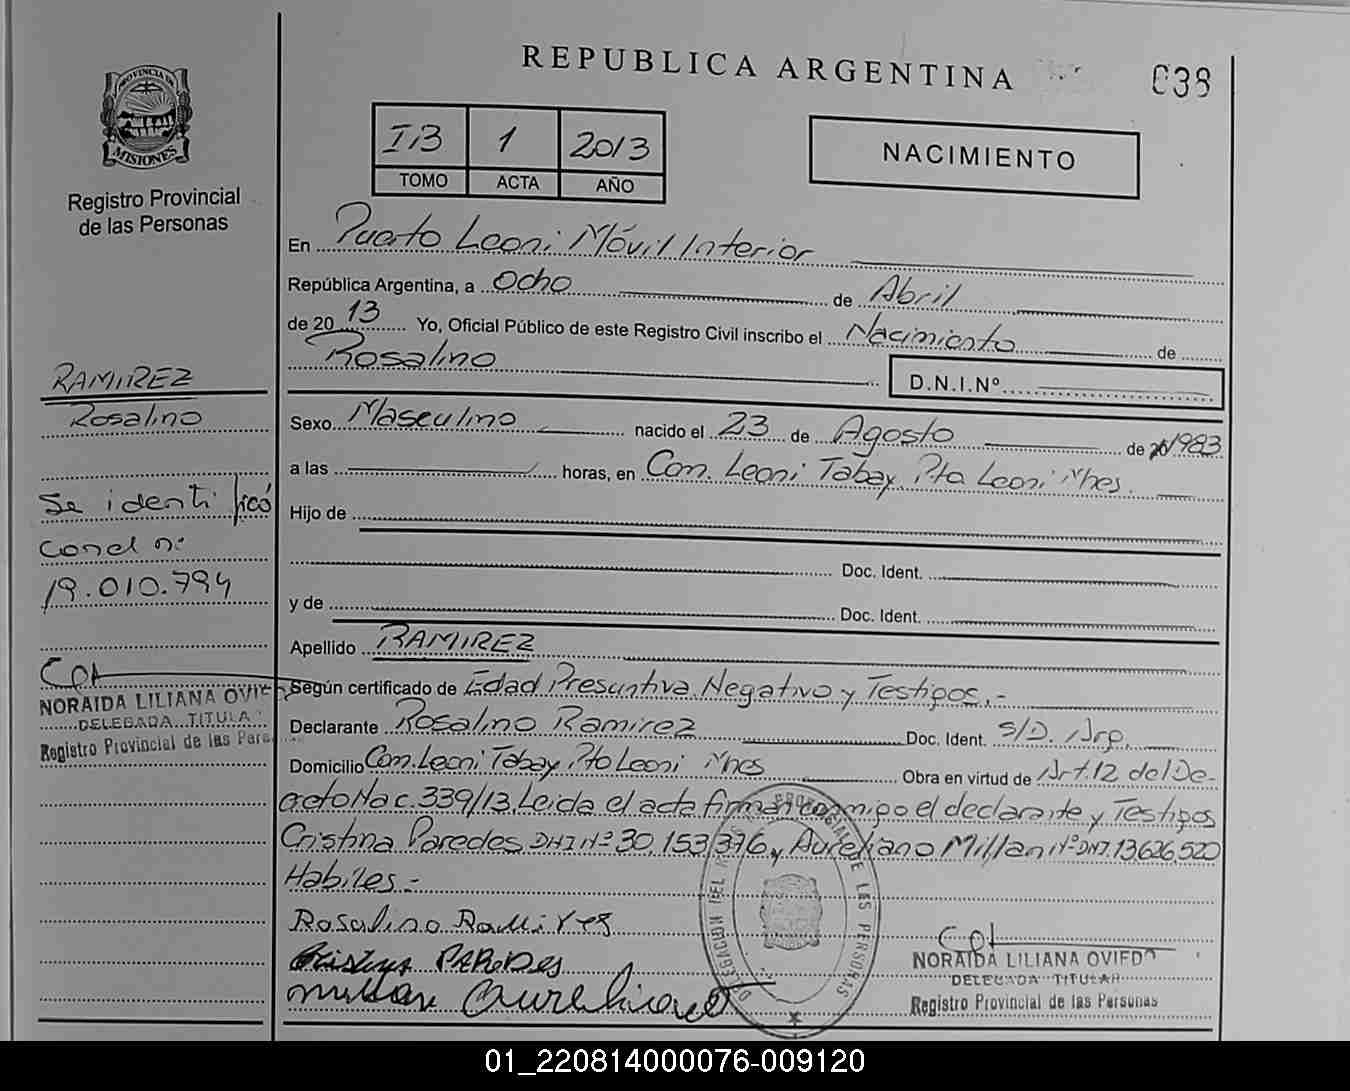 REPUBLICA ARGENTINA
038
PROVINCIA DE
MISIONES
Registro Provincial
de las Personas
I/B 1 2013
TOMO ACTA AÑO
NACIMIENTO
En Puerto Leoni Móvil Interior
República Argentina, a Ocho de Abril
de 2013 Yo, Oficial Público de este Registro Civil inscribo el Nacimiento de
Rosalino
D.N.I.Nº
RAMIREZ
Rosalino
Se identificó
con el nº
19.010.794
NORAIDA LILIANA OVIEDO
DELEGADA TITULAR
Registro Provincial de las Pers
Sexo Masculino nacido el 23 de Agosto de 1983
a las horas, en Com. Leoni Tabay Pto Leoni Mnes.
Hijo de
Doc. Ident.
y de Doc. Ident.
Apellido RAMIREZ
Según certificado de Edad Presuntiva, Negativo y Testigos.-
Declarante Rosalino Ramirez Doc. Ident. S/D. Arg.
Domicilio Com. Leoni Tabay Pto Leoni Mnes Obra en virtud de Art. 12 del De-
creto Nac. 339/13. Leida el acta firman conmigo el declarante y Testigos
Cristina Paredes DNI Nº 30.153.376 y Aureliano Millan Nº DNI. 13.626.520
Habiles.-
Rosalino Ramires
Cristina PAREDES
Millan Aureliano
DELEGACION DEL REGISTRO PROVINCIAL DE LAS PERSONAS
NORAIDA LILIANA OVIEDO
DELEGADA TITULAR
Registro Provincial de las Personas
01_220814000076-009120